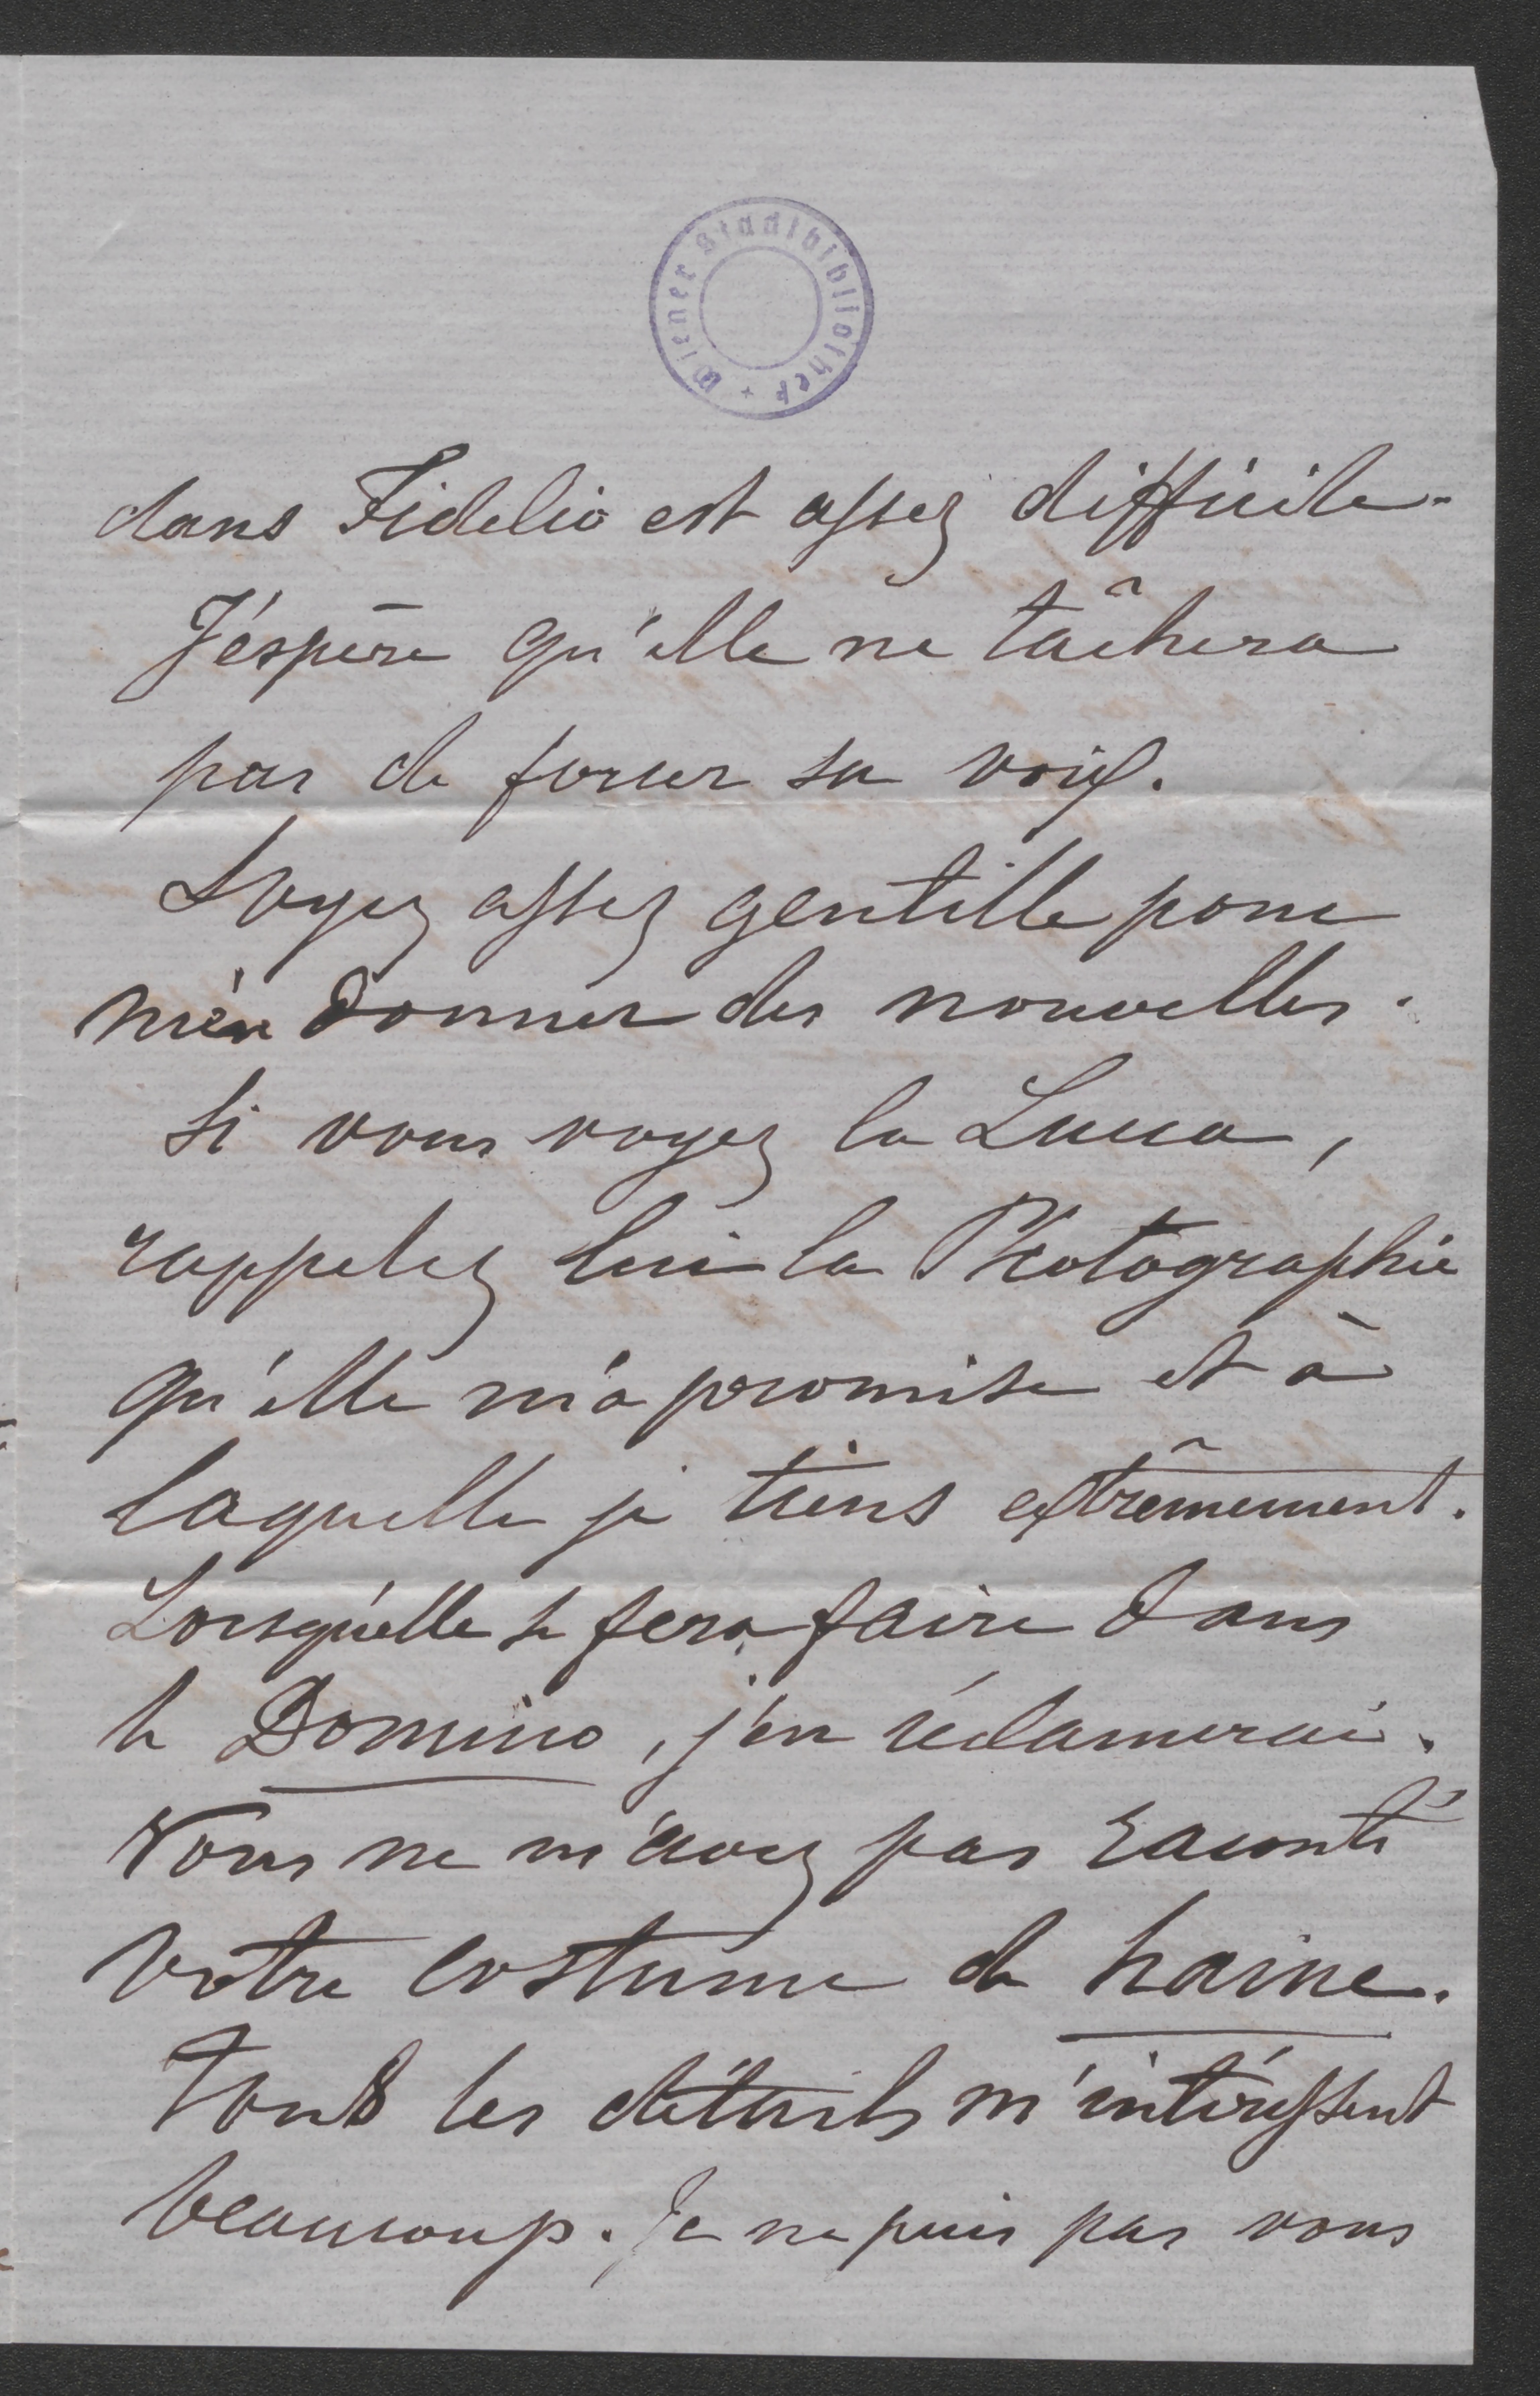 Wiener Stadtbibliothek
dans Fidelio est assez difficile.
J'éspère qu'elle ne tâchera
pas de forcer sa voix.
Soyez assez gentille pour
m'en donner des nouvelles.
Si vous voyez la Lucca,
rappelez lui la Photographie
qu'elle m'a promise et à
laquelle je tiens extrêmement.
Lorsqu'elle se fera faire dans
le Domino, j'en réclamerai.
Vous ne m'avez pas raconté
votre costume de haine.
Tous les détails m'intéressent
beaucoup. Je ne puis pas vous